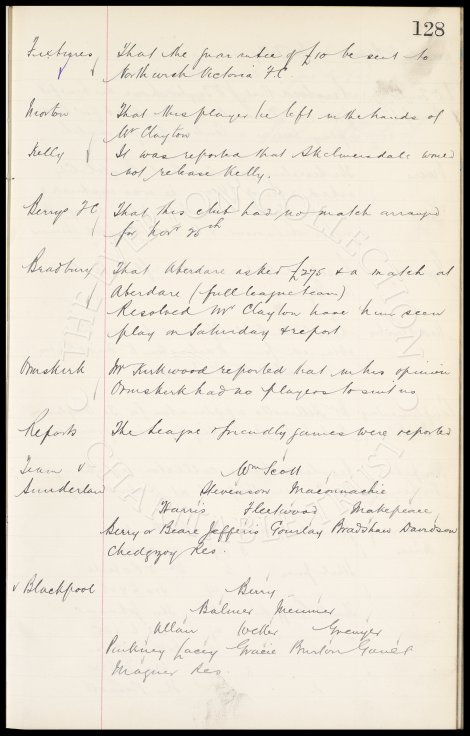 128
Fixtures That the guarantee of £10 be sent to
Northwich Victoria F.C.
Morton That this player be left in the hands of
Mr Clayton
Kelly It was reported that Skelmersdale would
not release Kelly.
Berrys F.C. That this club had no match arranged
for Novr 25th
Bradbury That Aberdare asked £275 & a match at
Aberdare (full league team)
Resolved Mr Clayton have him seen
play on Saturday & report
Ormskirk Mr Kirkwood reported that in his opinion
Ormskirk had no players to suit us
Reports The League & friendly games were reported
Team v Wm Scott
Sunderland Stevenson Maconnachie
Harris Fleetwood Makepeace
Berry or Beare Jefferis Gourlay Bradshaw Davidson
Chedgzoy Res.
v Blackpool Berry
Balmer Meunier
Allan Weller Grenyer
Pinkney Lacey Gracie Burton Gault
Magner Res.
THE EVERTON COLLECTION
CHARITABLE TRUST